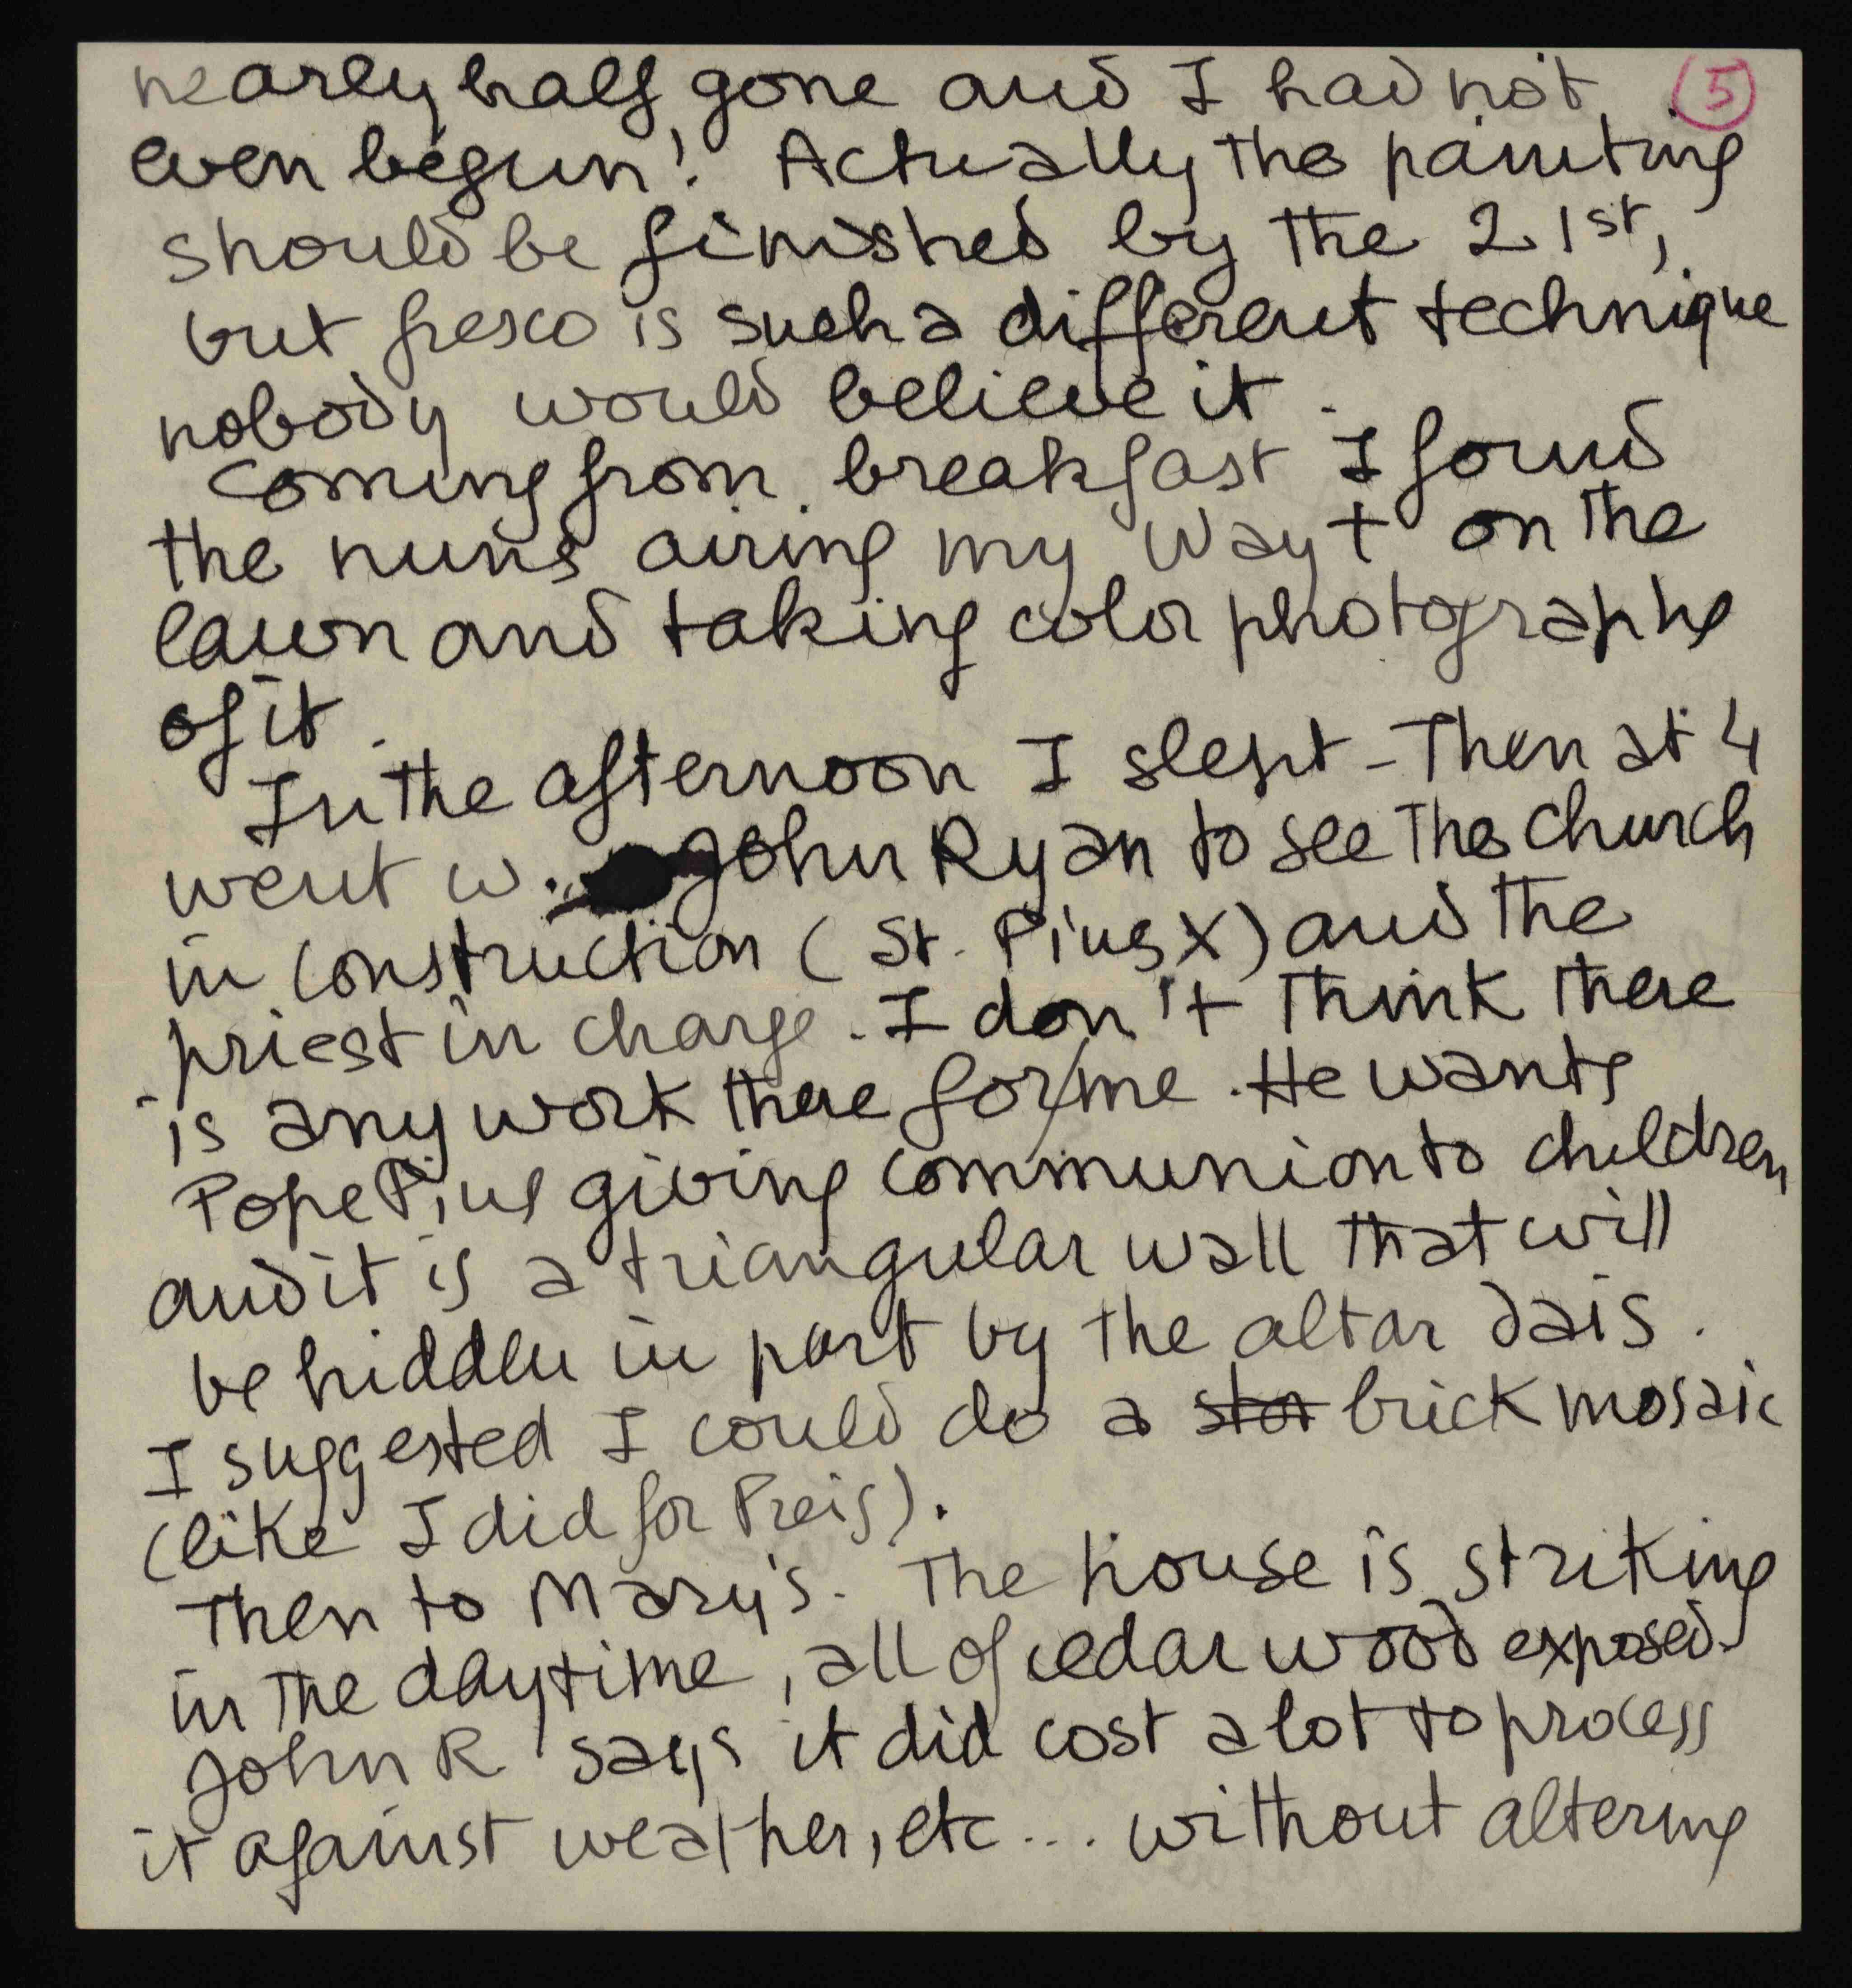 nearly half gone and I had not (5)
even begun! Actually the painting
should be finished by the 21st,
but fresco is such a different technique
nobody would believe it.
Coming from breakfast I found
the nuns airing my Way + on the
lawn and taking color photographs
of it.
In the afternoon I slept - Then at 4
went w. John Ryan to see the church
in construction (St. Pius X) and the
priest in charge. I don't think there
is any work there for/me. He wants
Pope Pius giving communion to children
and it is a triangular wall that will
be hidden in part by the altar dais.
I suggested I could do a stor brick mosaic
(like I did for Preis).
Then to Mary's. The house is striking
in the daytime, all of cedar wood exposed.
John R says it did cost a lot to process
it against weather, etc... without altering